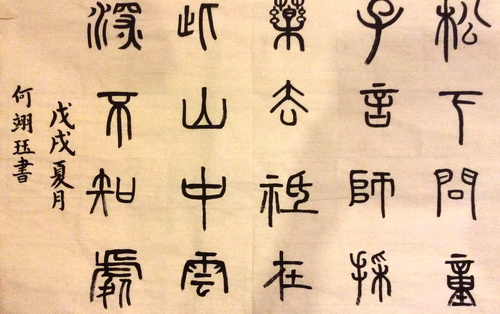 松下問童
子言師採
藥去祇在
此山中雲
深不知處
戊戌夏月
何翊珏書